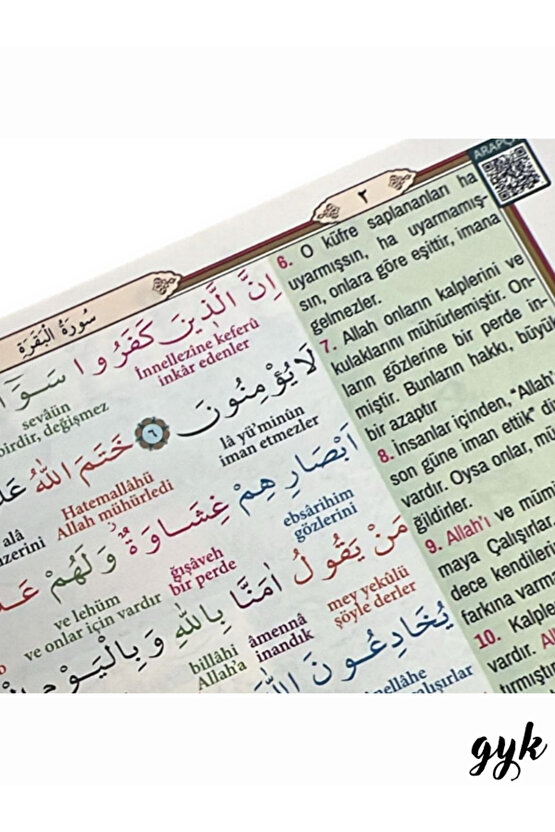 سُورَةُ الْبَقَرَةِ
٢
اِنَّ الَّذ۪ينَ كَفَرُوا سَوَٓا
İnnellezine keferû
inkâr edenler
sevâün
birdir, değişmez
لَا يُؤْمِنُونَ ٦ خَتَمَ اللّٰهُ
lâ yü'minûn
iman etmezler
Hatemallâhü
Allah mühürledi
alâ
üzerini
اَبْصَارِهِمْ غِشَاوَةٌ وَلَهُمْ
ebsârihim
gözlerini
ğışâveh
bir perde
ve lehüm
ve onlar için vardır
مَنْ يَقُولُ اٰمَنَّا بِاللّٰهِ وَبِالْيَوْمِ
mey yekûlü
şöyle derler
âmennâ
inandık
billâhi
Allah'a
يُخَادِعُونَ اللّٰهَ
nellahe
çalışırlar
ARAPÇA
6. O küfre saplananları ha
uyarmışsın, ha uyarmamış-
sın, onlara göre eşittir, imana
gelmezler.
7. Allah onların kalplerini ve
kulaklarını mühürlemiştir. On-
ların gözlerine bir perde in-
miştir. Bunların hakkı, büyü
bir azaptır
8. İnsanlar içinden, "Allah'
son güne iman ettik" di
vardır. Oysa onlar, mü
ğildirler.
9. Allah'ı ve müm
maya Çalışırlar
dece kendileri
farkına varm
10. Kalple
vardır. Al
tırmıştı
gyk